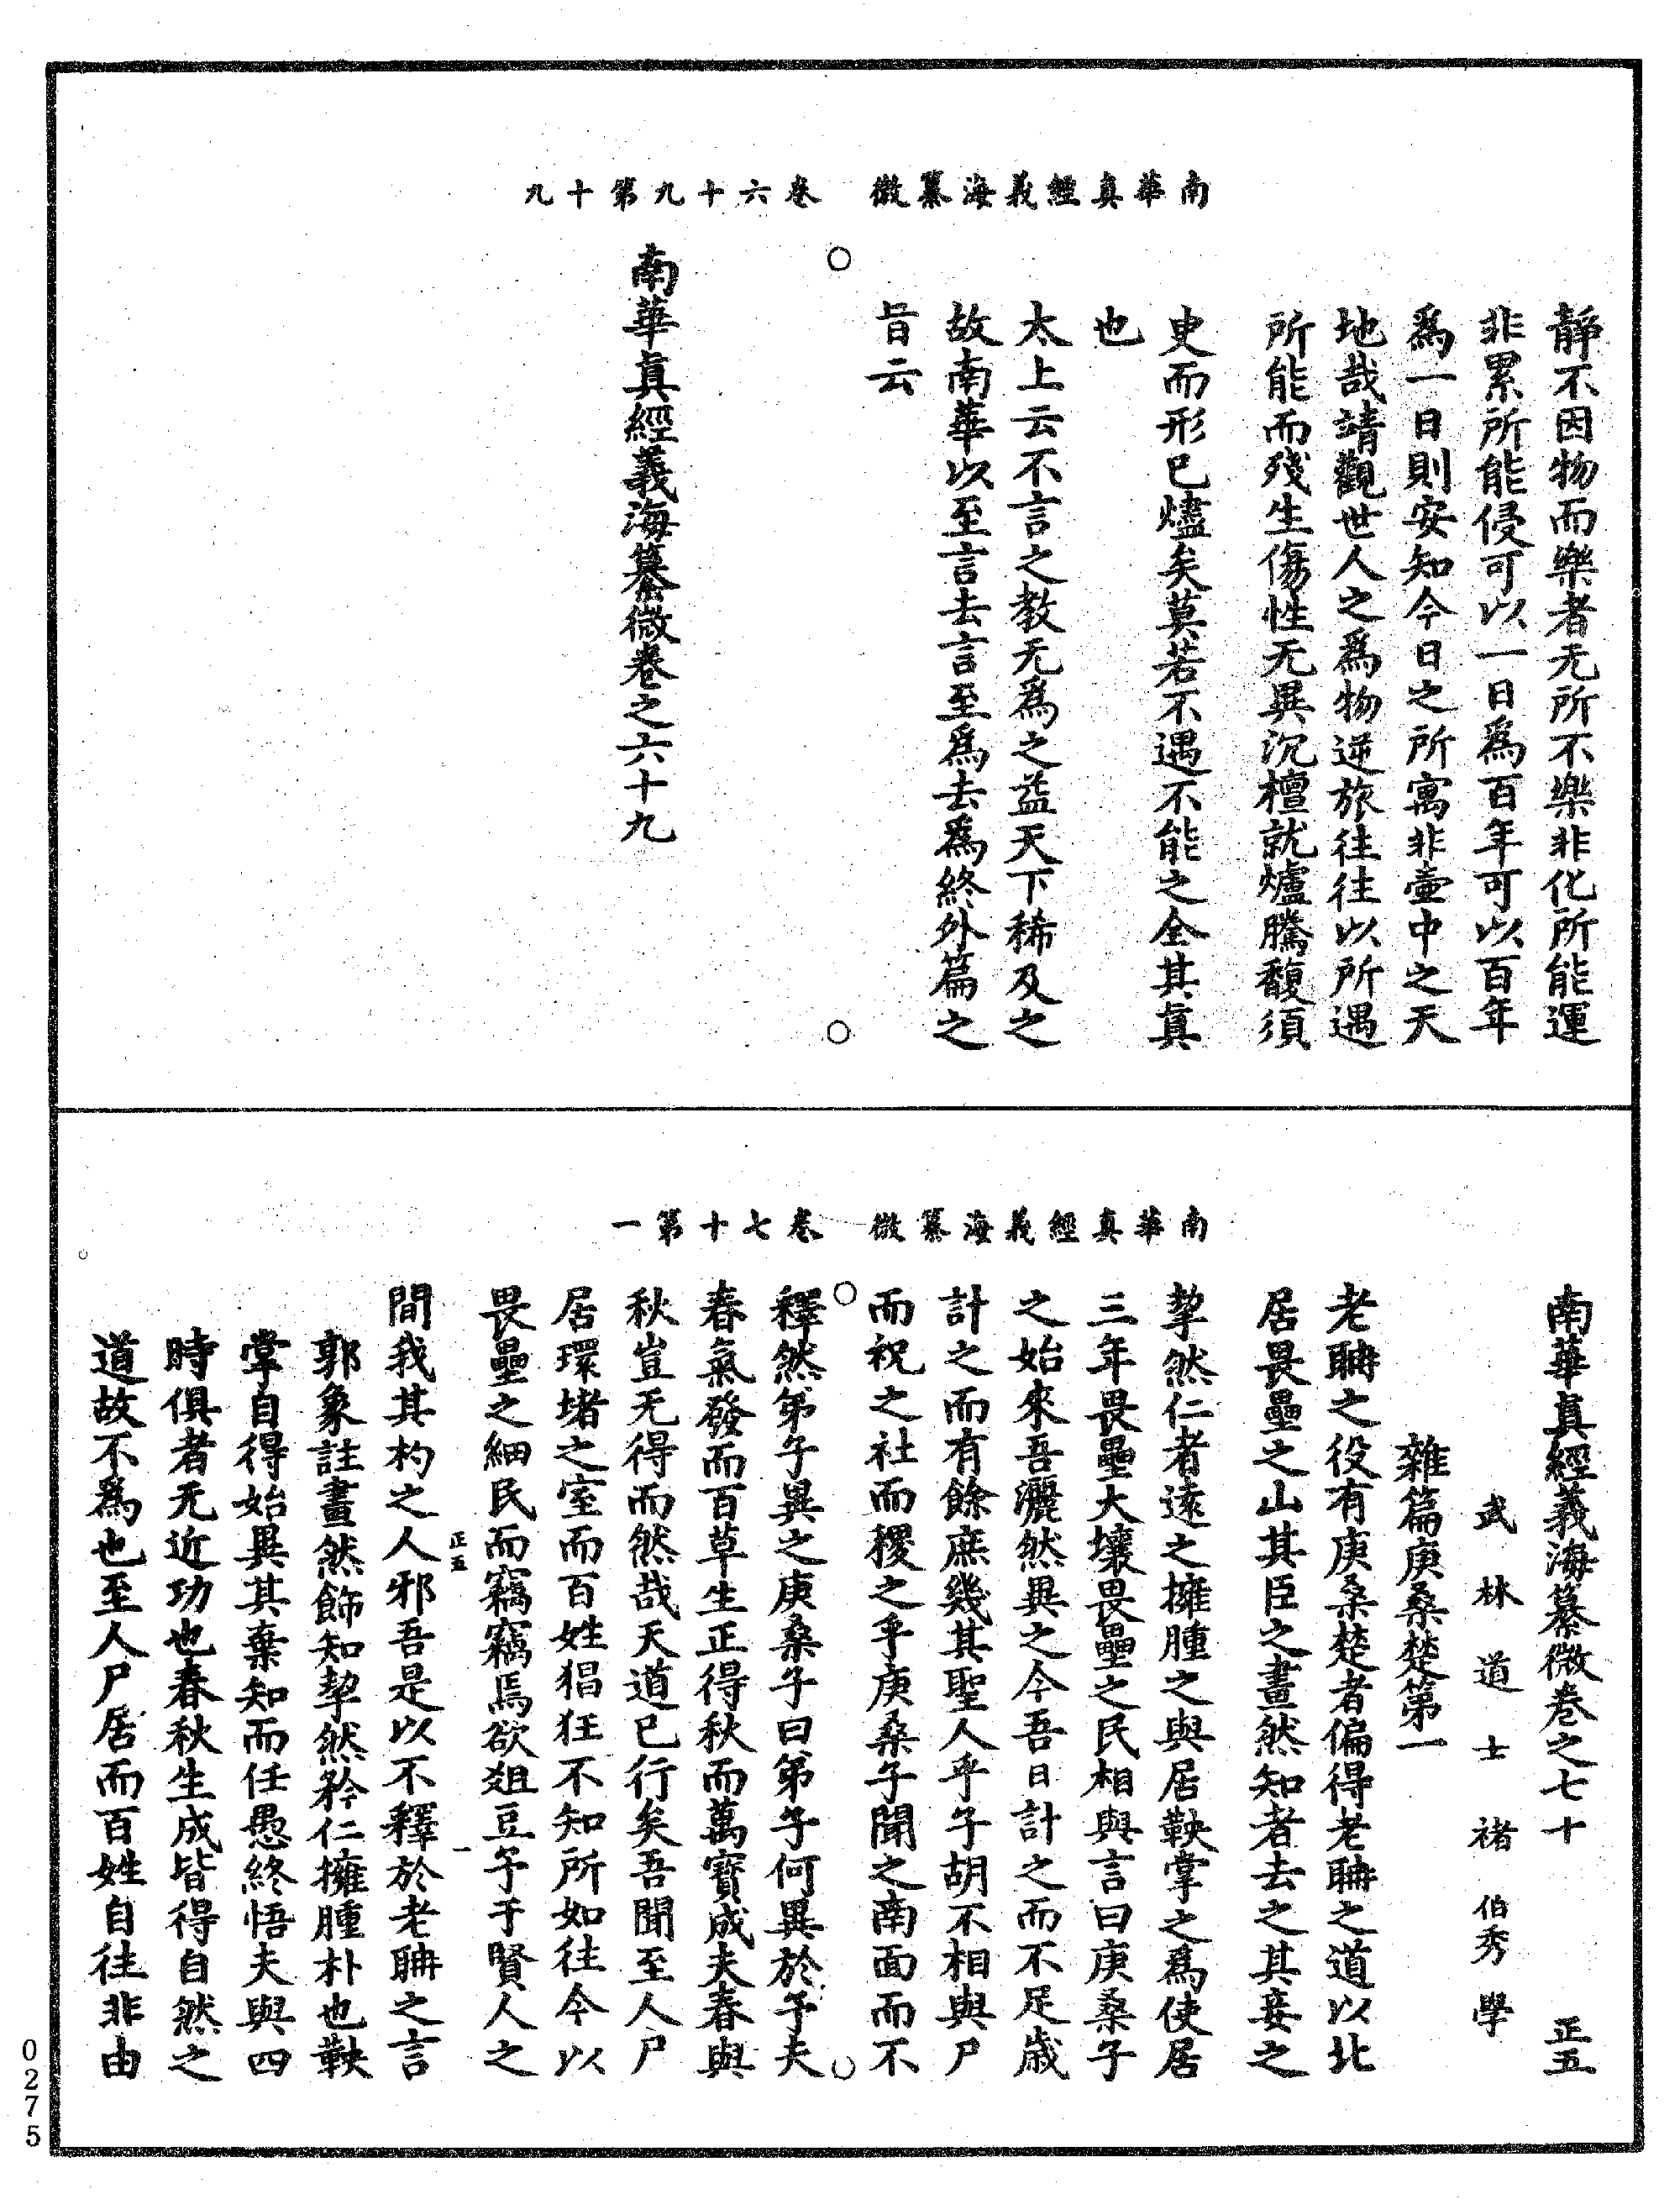 南華真經義海纂微 卷六十九第十九
靜不因物而樂者无所不樂非化所能運
非累所能侵可以一日爲百年可以百年
爲一日則安知今日之所寓非壷中之天
地哉靖觀世人之爲物逆旅往往以所遇
所能而殘生傷性无異沉檀就爐騰馥須
臾而形已燼矣莫若不遇不能之全其眞
也
太上云不言之教无爲之益天下稀及之
故南華以至言去言至爲去爲終外篇之
旨云
南華眞經義海纂微卷之六十九
南華真經義海纂微 卷七十第一
南華眞經義海纂微卷之七十 正五
武林道士褚伯秀學
雜篇庚桑楚第一
老聃之役有庚桑楚者偏得老聃之道以北
居畏壘之山其臣之畫然知者去之其妾之
挈然仁者遠之擁腫之與居鞅掌之爲使居
三年畏壘大壤畏壘之民相與言曰庚桑子
之始來吾灑然異之今吾日計之而不足歲
計之而有餘庶幾其聖人乎子胡不相與尸
而祝之社而稷之乎庚桑子聞之南面而不
釋然弟子異之庚桑子曰弟子何異於予夫
春氣發而百草生正得秋而萬寳成夫春與
秋豈无得而然哉天道已行矣吾聞至人尸
居環堵之室而百姓猖狂不知所如往今以
畏壘之細民而竊竊焉欲俎豆予于賢人之
正五 一
間我其杓之人邪吾是以不釋於老聃之言
郭象註畫然飾知挈然矜仁擁腫朴也鞅
掌自得始異其棄知而任愚終悟夫與四
時俱者无近功也春秋生成皆得自然之
道故不爲也至人尸居而百姓自往非由
0275